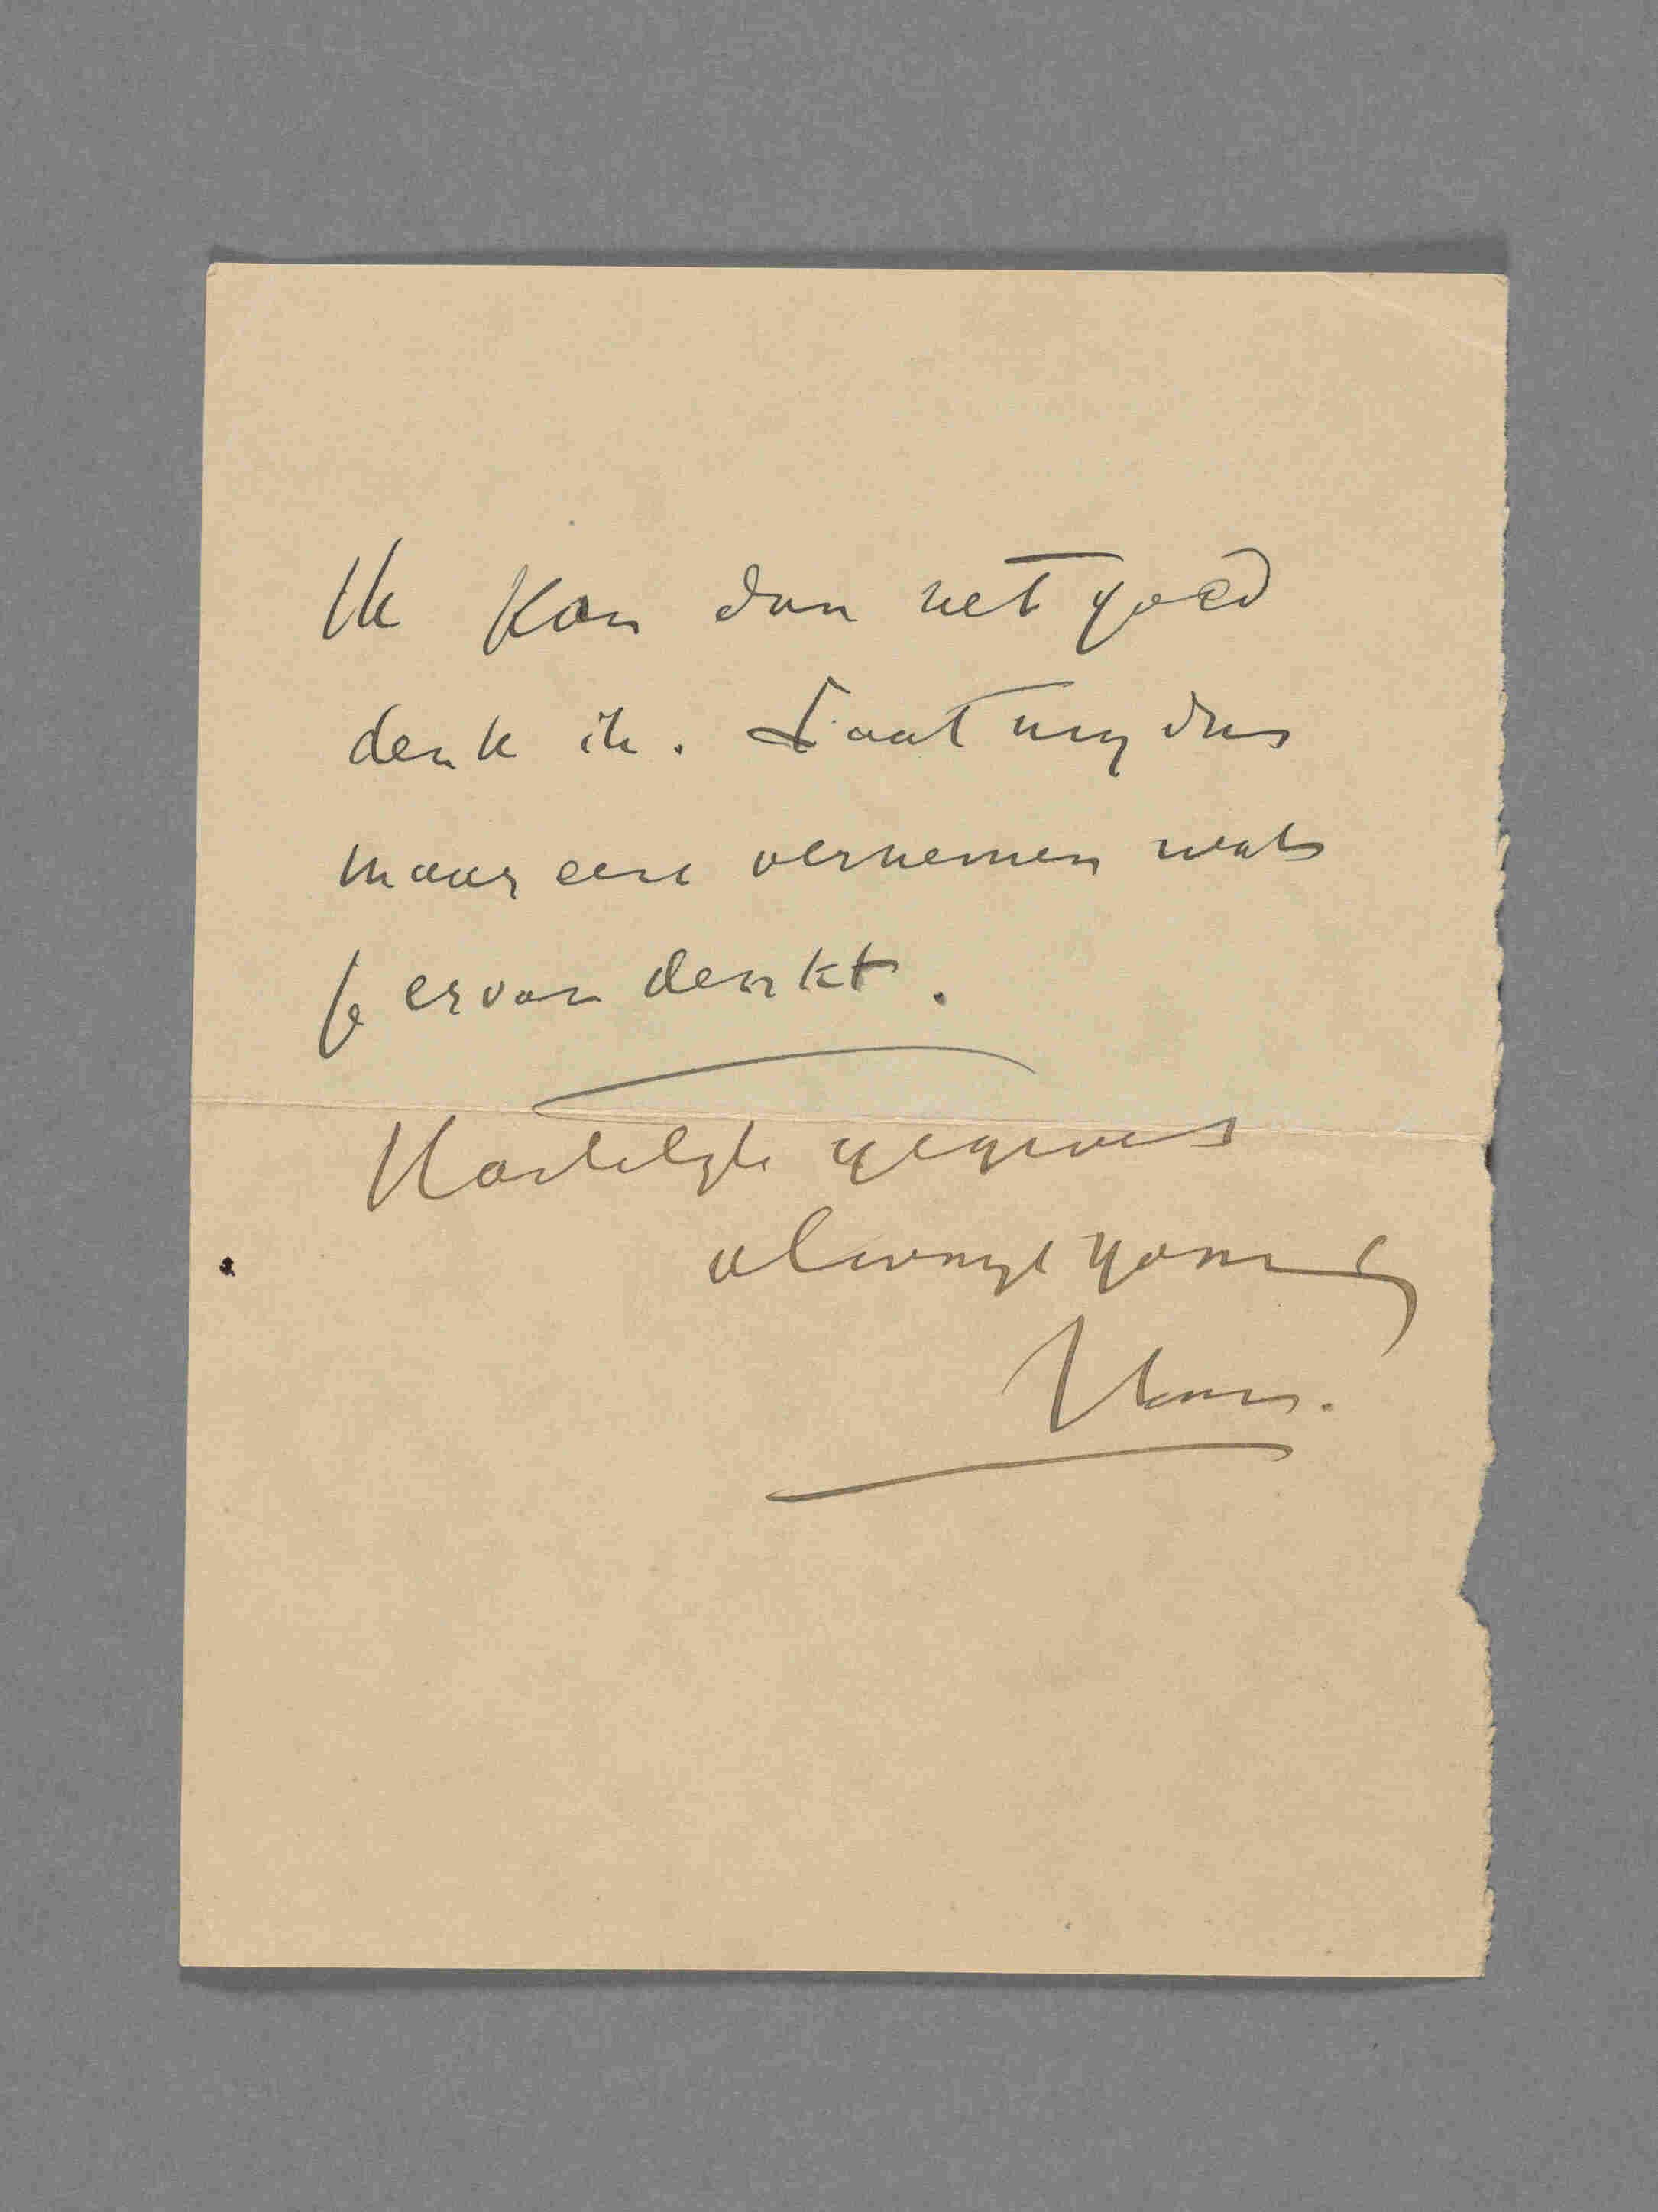 Ik kan dan net goed
denk ik. Laat mij dus
maar eens vernemen wat
je ervan denkt.
Hartelijk gegroet
always yours
Hans.